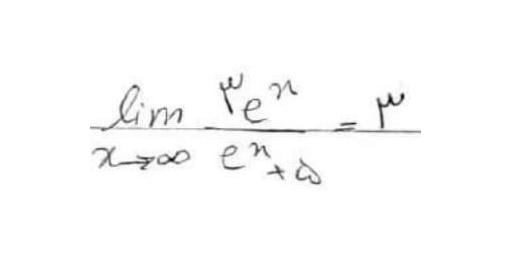 lim x→∞ ۳e^x / e^x + ۵ = ۳